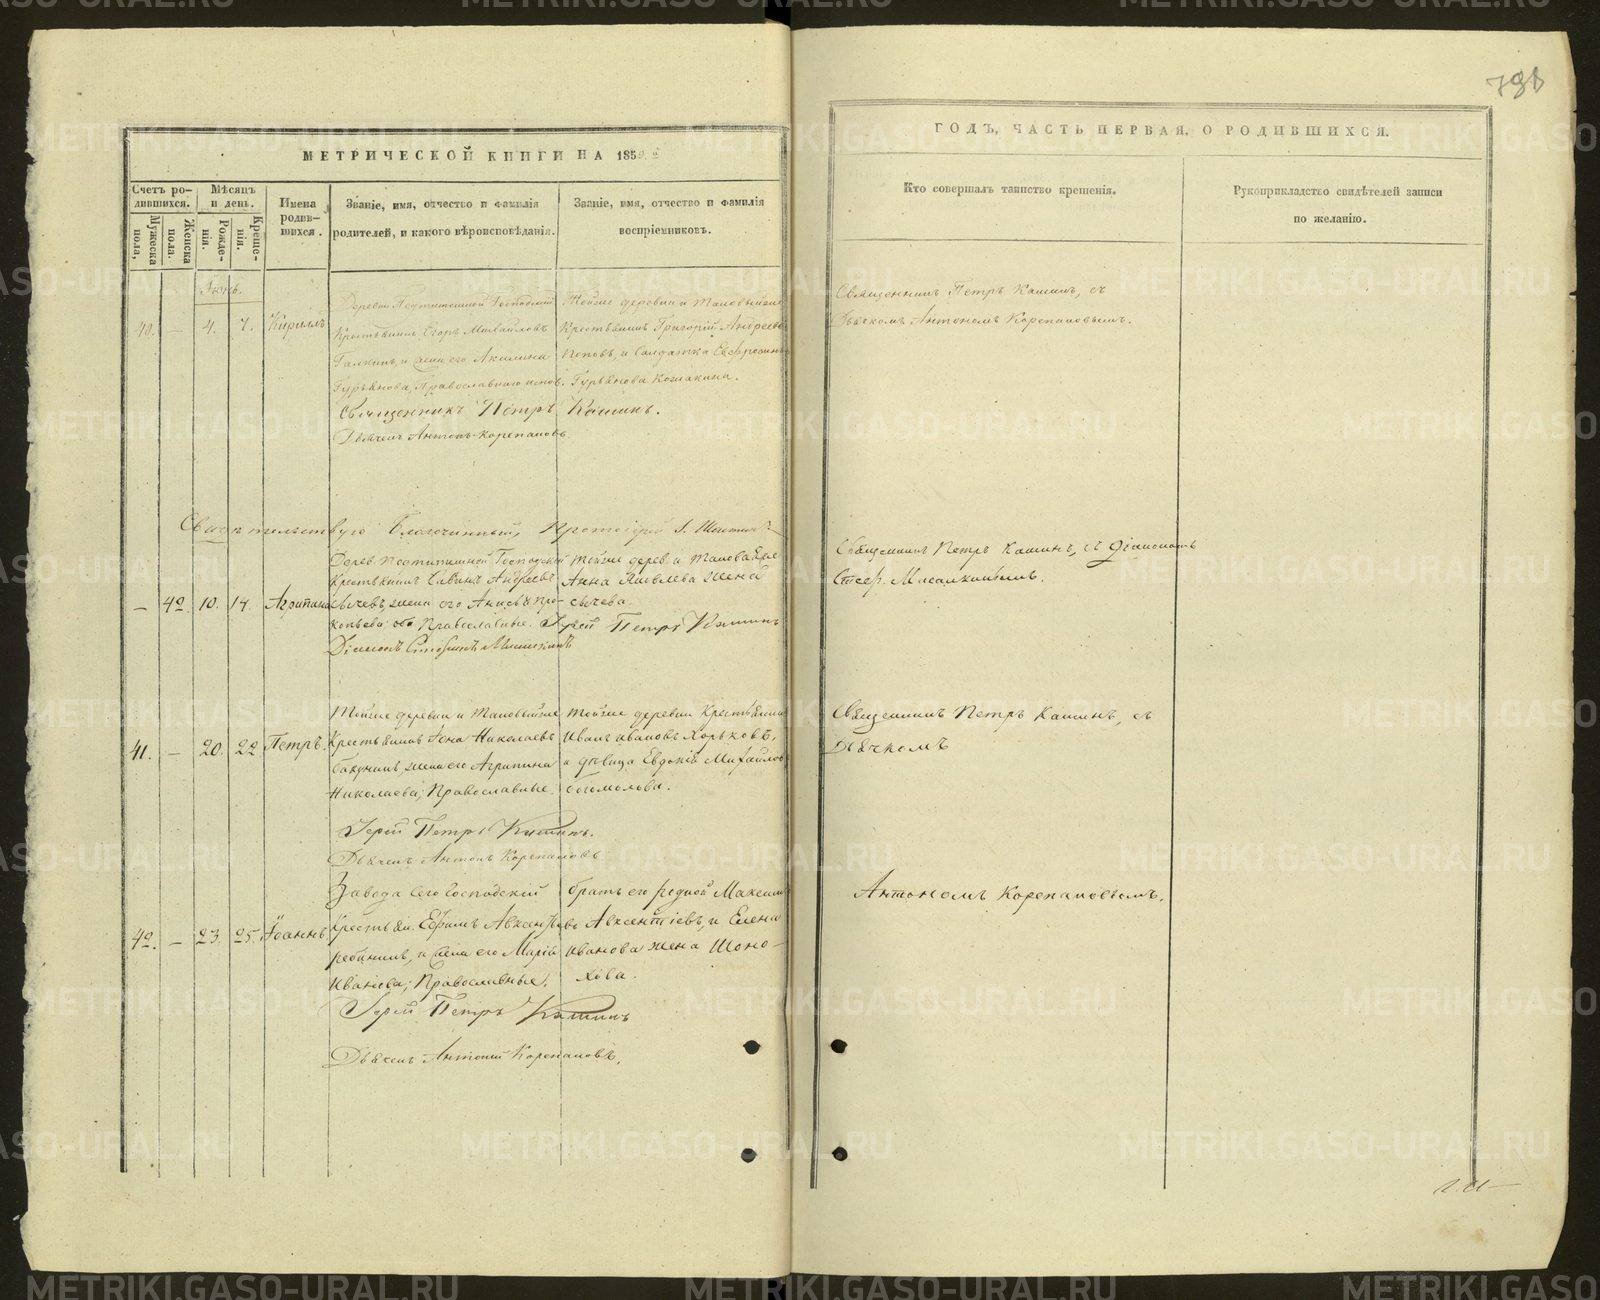 793
МЕТРИЧЕСКОЙ КНИГИ НА 185
ГОДЪ, ЧАСТЬ ПЕРВАЯ, О РОДИВШИХСЯ.
Счетъ родившихся.
Мужеска пола,
Женска пола.
Мѣсяцъ и день.
Рожденія.
Крещенія.
Имена родившихся.
Званіе, имя, отчество и фамилія
родителей, и какого вѣроисповѣданія.
Званіе, имя, отчество и фамилія
воспріемниковъ.
Кто совершалъ таинство крещенія.
Рукоприкладство свидѣтелей записи
по желанію.
Іюнь.
40. — 4. 7. Кириллъ
Деревни Господский
Крестьянинъ Егоръ Михайловъ
Галкинъ, и жена его Акилина
Гурьянова, Православнаго испов.
Тойже деревни и
Крестьянинъ Григорій Андреевъ
Поповъ, и Солдатка Евфросинья
Гурьянова
Священникъ Петръ Кашинъ, съ
Дьячкомъ Антономъ Корепановымъ.
Священникъ Петръ Кашинъ.
Дьячекъ Антонъ Корепановъ
Свидѣтельствую Благочинный, Протоіерей І.
— 42. 10. 14. Агрипина
Дерев. Господской
Крестьянинъ Савинъ Андреевъ
Сычевъ, жена его Анисья Про-
копьева; оба Православные.
Тойже дерев. и
Анна Яковлева жена
Сычева.
Священникъ Петръ Кашинъ, съ Діакономъ
Стеф.
Іерей Петръ Кашинъ
Діаконъ Стефанъ
41. — 20. 22 Петръ.
Тойже деревни и
Крестьянинъ Іона Николаевъ
Бакунинъ, жена его Агрипина
Николаева; Православные.
Тойже деревни Крестьянинъ
Иванъ Ивановъ Хорьковъ,
и дѣвица Евдокія Михайлова
Богомолова.
Священникъ Петръ Кашинъ, съ
Дьячкомъ
Іерей Петръ Кашинъ.
Дьячекъ Антонъ Корепановъ
42. — 23. 25. Іоаннъ
Завода Сего Господский
Крестьян. Ефимъ Авксентьевъ
и жена его Марія
Иванова; Православные.
братъ его родной Максимъ
Авксентіевъ, и Елена
Иванова жена Шоно-
хова.
Антономъ Корепановымъ.
Іерей Петръ Кашинъ
Дьячекъ Антоній Корепановъ.